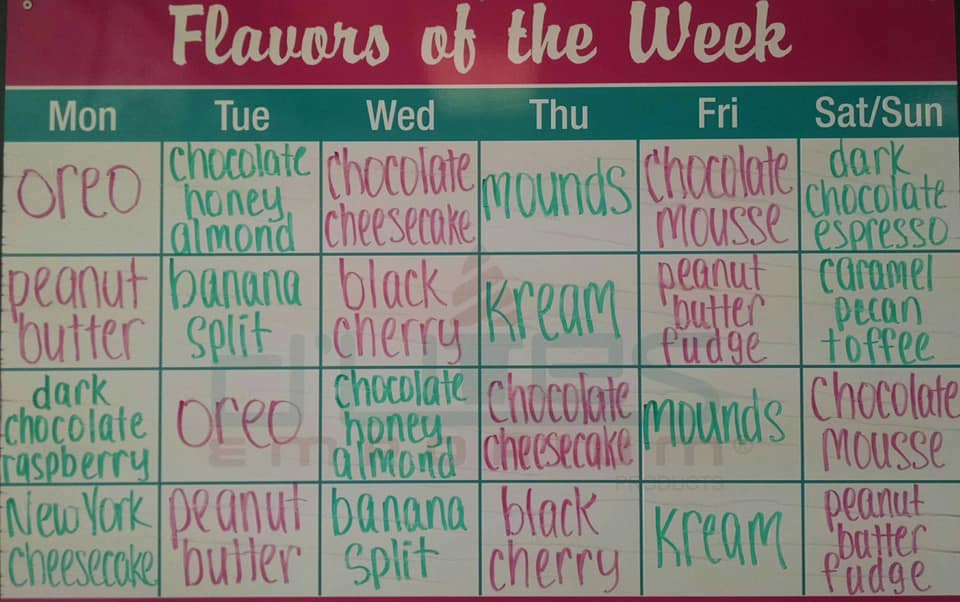 Flavors of the Week
Mon Tue Wed Thu Fri Sat/Sun
oreo
chocolate
honey
almond
chocolate
cheesecake
mounds
chocolate
mousse
dark
chocolate
espresso
peanut
butter
banana
split
black
cherry
Kream
peanut
butter
fudge
caramel
pecan
toffee
dark
chocolate
raspberry
oreo
chocolate
honey
almond
chocolate
cheesecake
mounds
chocolate
mousse
New York
cheesecake
peanut
butter
banana
split
black
cherry
Kream
peanut
butter
fudge
PRODUCTS